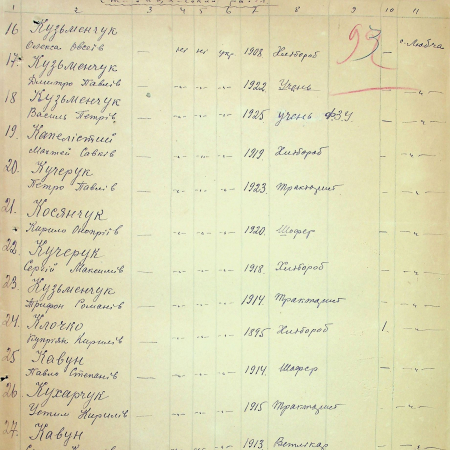 1 2 3 4 5 6 7 8 9 10 11
16 Кузьменчук
Олекса Овсіїв — нет нет укр 1908 Хлібороб 93 — с. Любча
17. Кузьменчук
Дмитро Павлів — -"- -"- -"- 1922 Учень — -"-
18 Кузьменчук
Василь Петрів — -"- -"- -"- 1925 учень ФЗУ — -"-
19. Капелістий
Мохтей Савків — -"- -"- -"- 1919 Хлібороб — -"-
20. Кучерук
Петро Павлів — -"- -"- -"- 1923. Тракторист — -"-
21. Косянчук
Кирило Онопріїв — -"- -"- -"- 1920. Шофер — -"-
22. Кучерук
Сергій Максимів — -"- -"- -"- 1918. Хлібороб — -"-
23 Кузьменчук
Трифон Романів — -"- -"- -"- 1914. Тракторист — -"-
24. Клочко
Купріян Кирилів — -"- -"- -"- 1895 Хлібороб 1. -"-
25 Кавун
Павло Степанів — -"- -"- -"- 1914. Шофер — -"-
26 Кухарчук
Устим Кирилів — -"- -"- -"- 1915 Тракторист — -"-
27. Кавун
1913